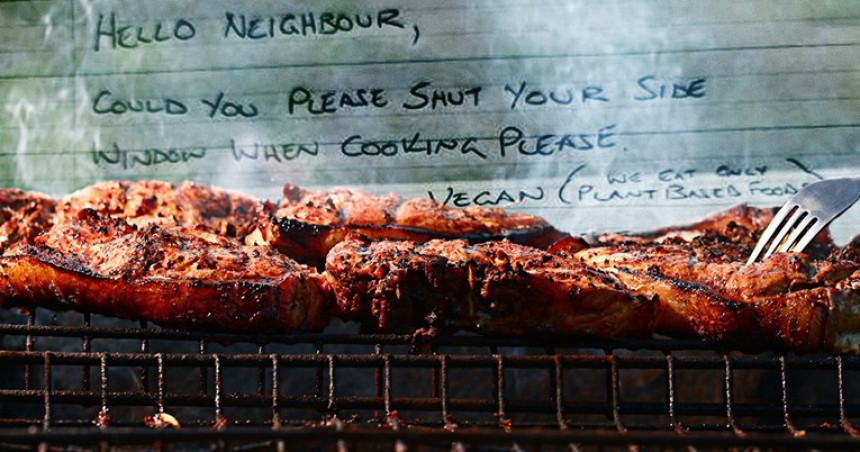 HELLO NEIGHBOUR,
COULD YOU PLEASE SHUT YOUR SIDE
WINDOW WHEN COOKING PLEASE.
VEGAN (WE EAT ONLY
PLANT BASED FOOD)